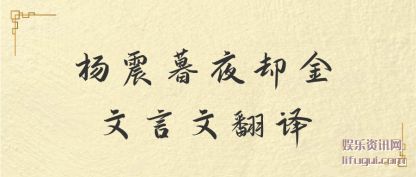 杨震暮夜却金
文言文翻译
娱乐资讯网
lifugui.com